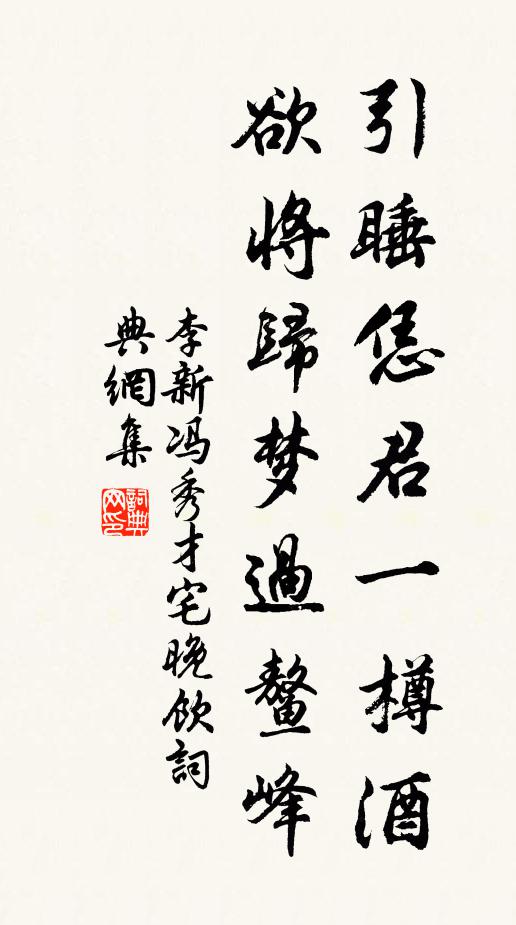 引睡恁君一樽酒
欲将歸梦過鳌峰
李新冯秀才宅晚飲詞
典網集
詞典网印